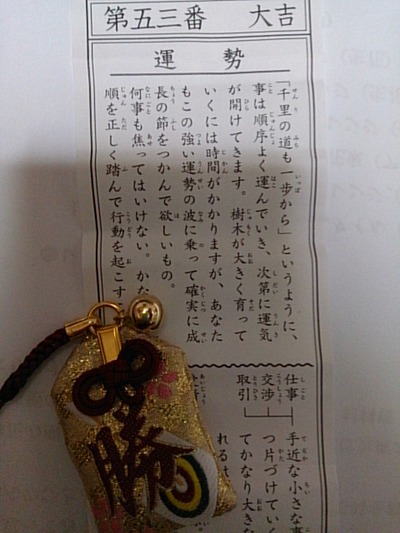 第五三番 大吉
運勢
「千里の道も一歩から」というように、
事は順序よく運んでいき、次第に運気
が開けてきます。樹木が大きく育って
いくには時間がかかりますが、あなた
もこの強い運勢の波に乗って確実に成
長の節をつかんで欲しいもの。
何事も焦ってはいけない。かな
順を正しく踏んで行動を起こす
仕事
交渉
取引
手近な小さな事
つ片づけていく
てかなり大きな
れるは
勝